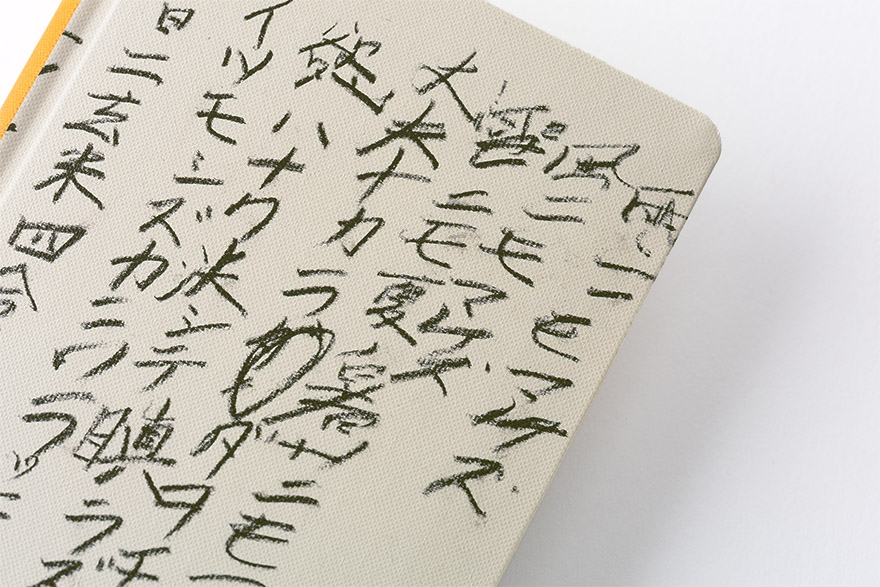 雨ニモマケズ
風ニモマケズ
雪ニモ夏ノ暑サニモ
丈夫ナカラダヲモチ
慾ハナク
決シテ瞋ラズ
イツモシズカニワラッ
日ニ玄米四合